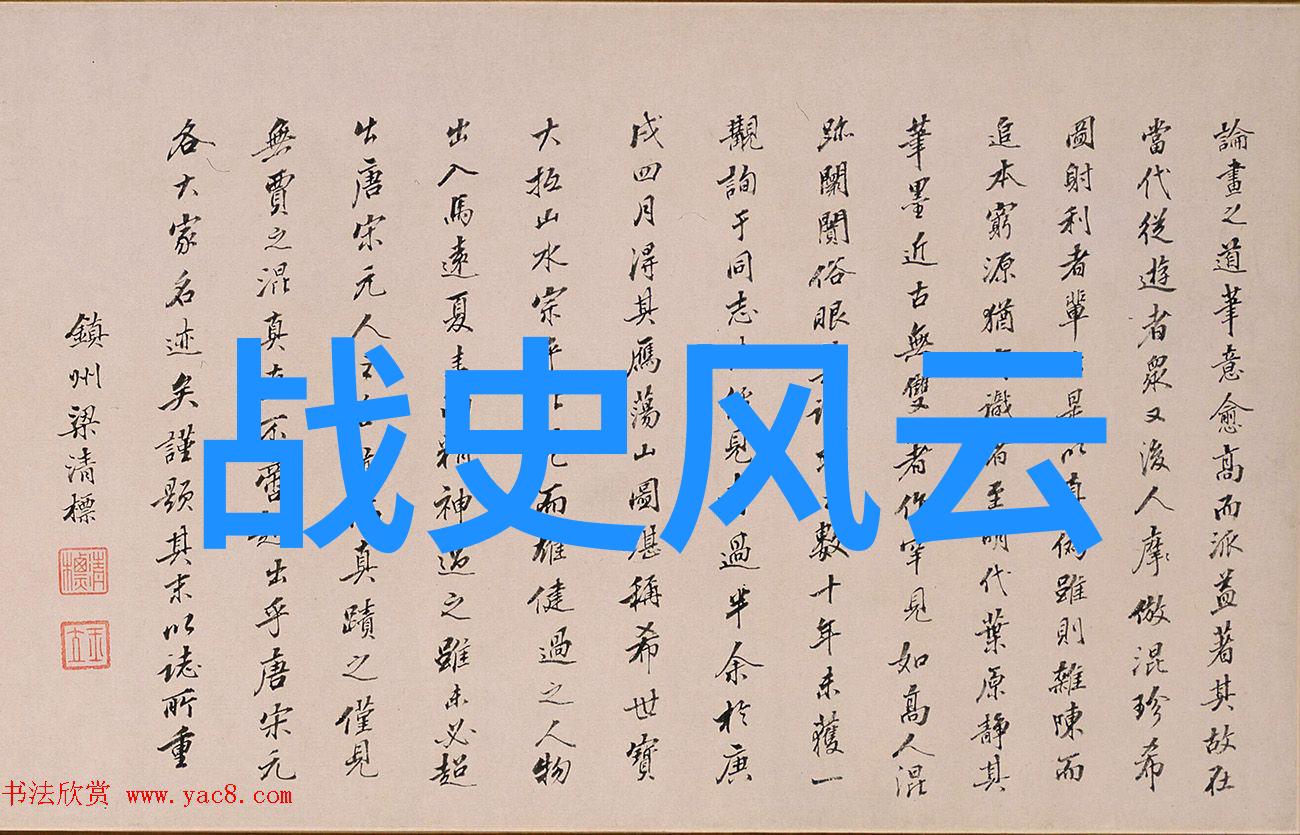 論畫之道筆意愈高而派益著其故在
當代從遊者眾又後人摩倣混珍希
圖射利者輩是以真偽雖則雜陳而
追本窮源猶識者至明代葉原靜其
筆墨近古無雙者作罕見如高人混
跡闤闠俗眼數十年未獲一
觀詢于同志見過半余於庚
戌四月得其鴈蕩山圖堪稱希世寶
大抵山水宗而雄健過之人物
出入馬遠夏神過之雖未必超
出唐宋元人真蹟之僅見
無賈之混真出乎唐宋元
各大家名迹矣謹題其末以誌所重
鎮州梁清標
清標
玉立
战史风云
书法欣赏 www.yac8.com